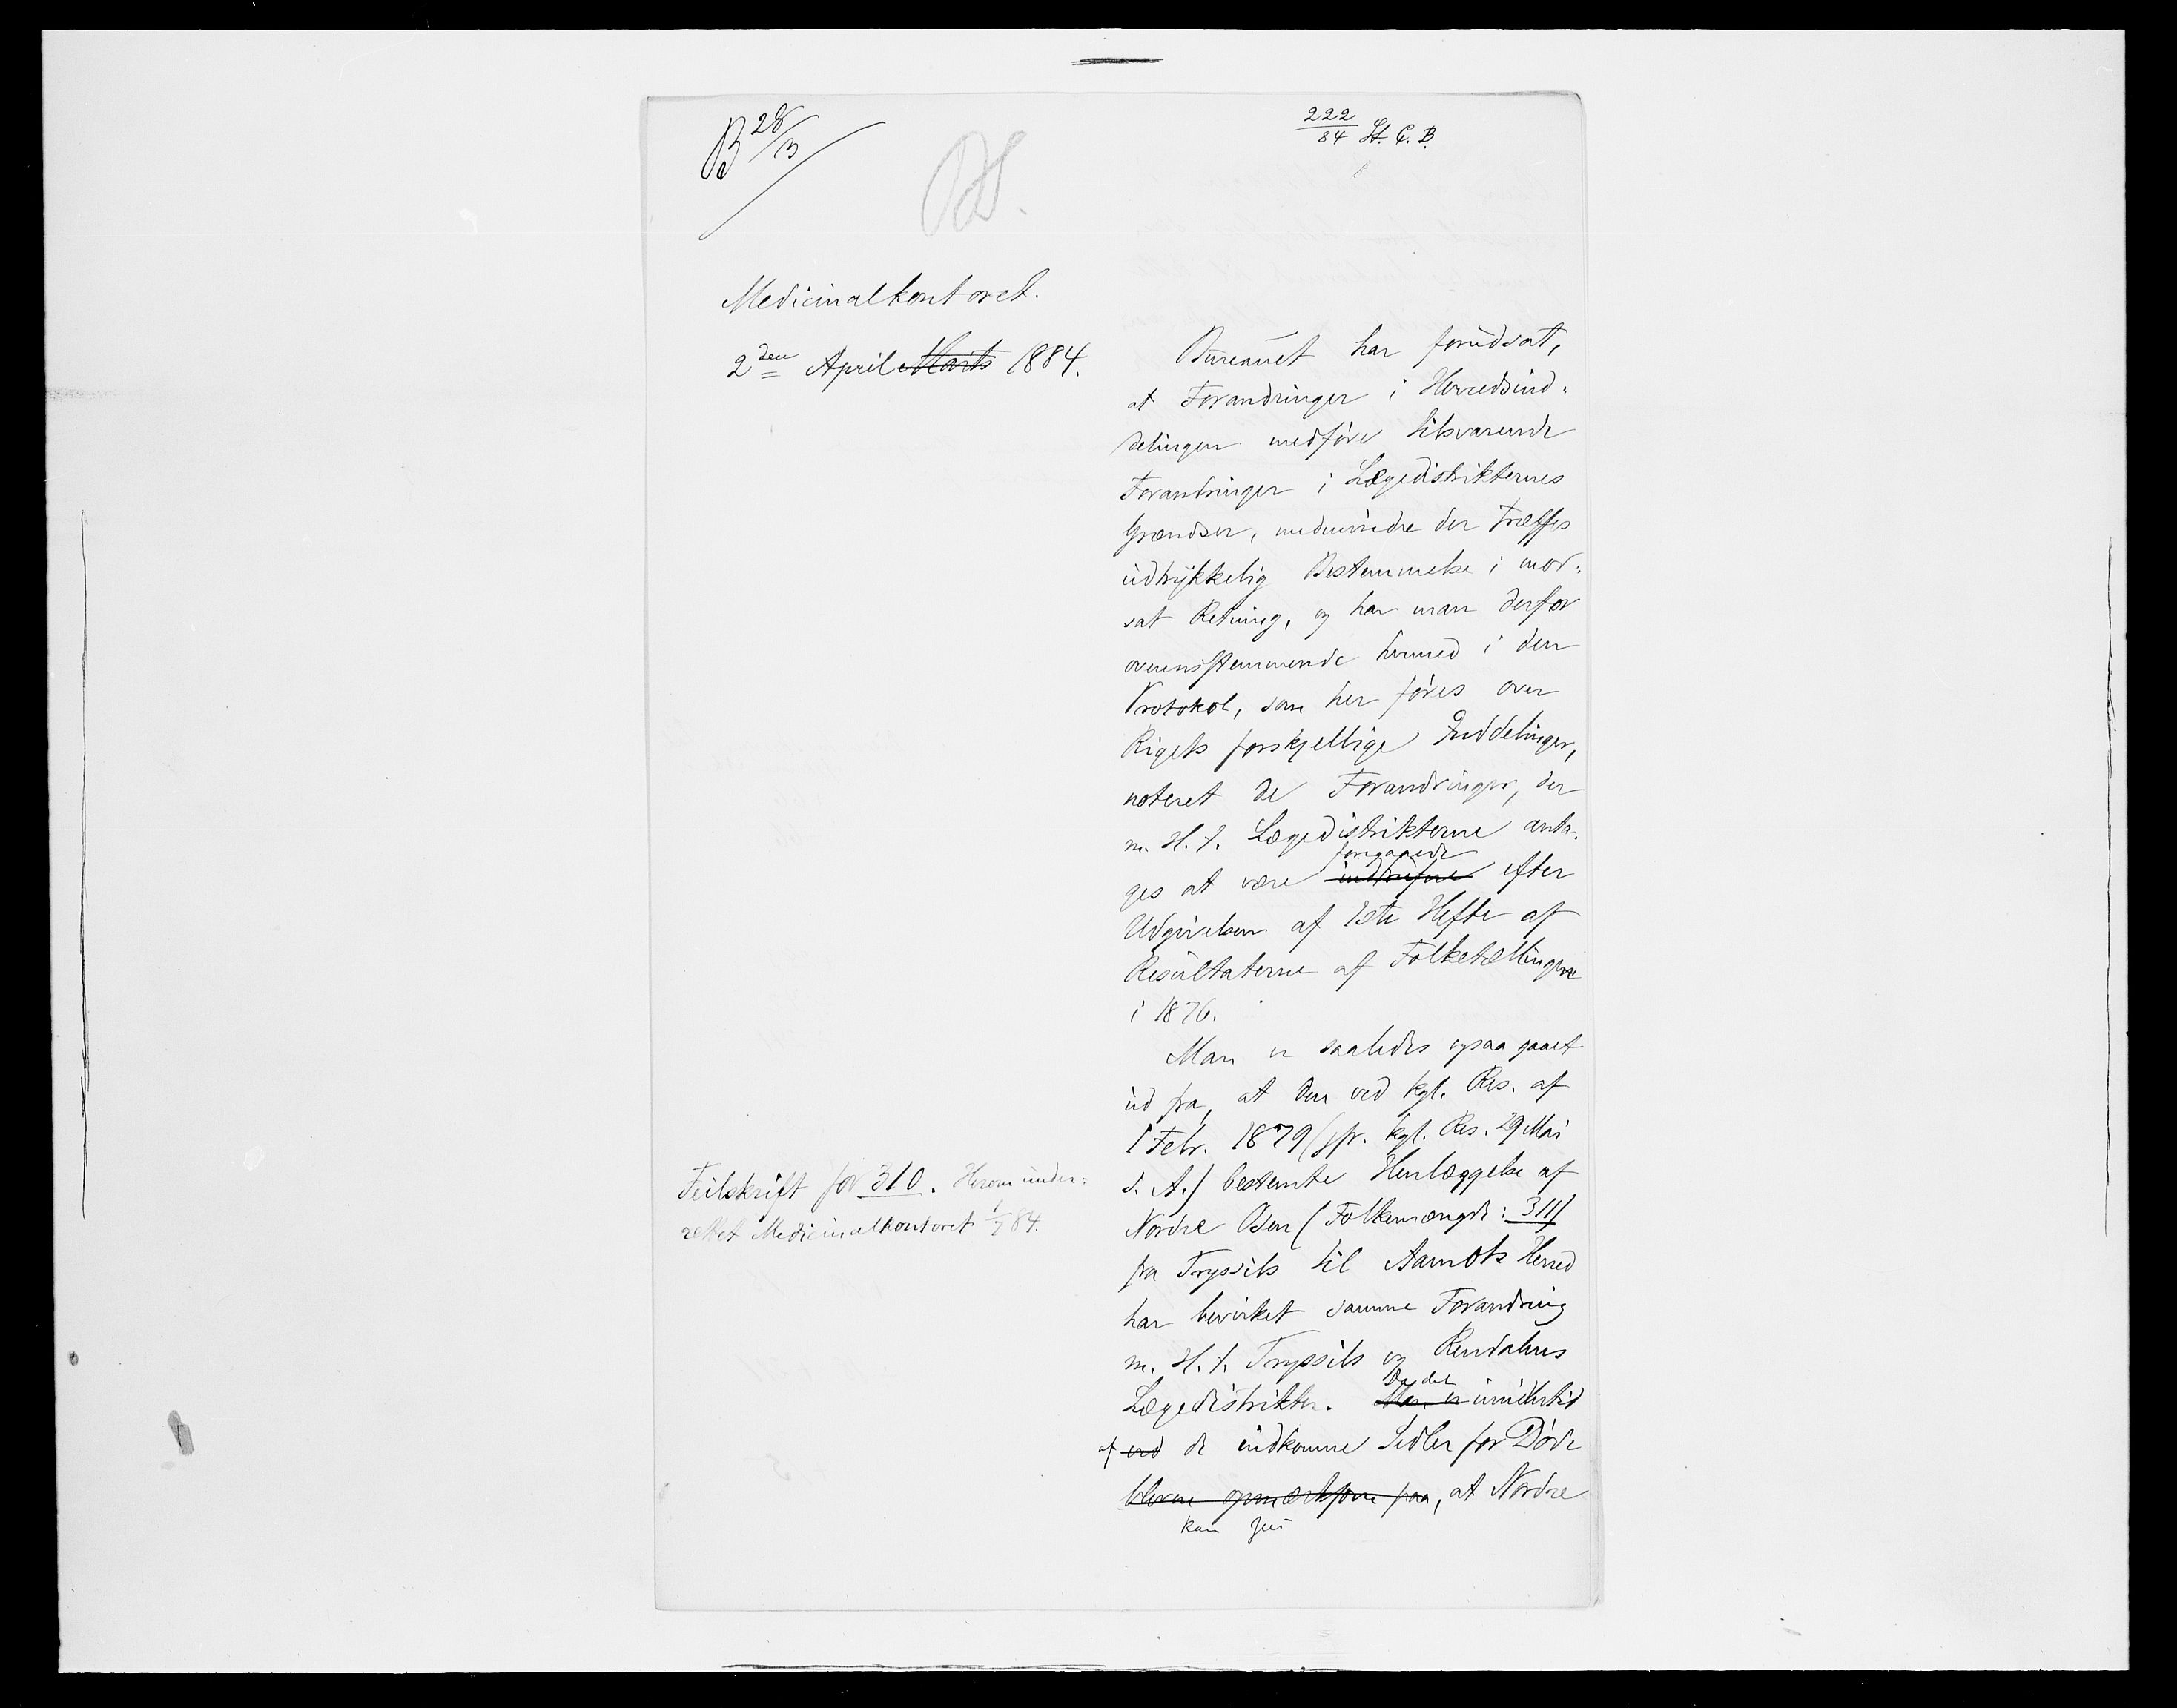 B 28/3
222/84 St. C. B.
Medicinalkontoret.
2den April Marts 1884.
Bureauet har forudsat,
at Forandringer i Herredsind-
delingen medføre tilsvarende
Forandringer i Lægedistrikternes
Grændser, medmindre der træffes
udtrykkelig Bestemmelse i mod-
sat Retning, og har man derfor
overensstemmende hermed i den
Protokol, som her føres over
Rigets forskjellige Inddelinger,
noteret de Forandringer, der
m. H. t. Lægedistrikterne anta-
foregaaede
ges at være indtrufne efter
Udgivelsen af 1ste Hefte af
Resultaterne af Folketællingerne
i 1876.
Man er saaledes ogsaa gaaet
ud fra, at den ved kgl. Res. af
1 Febr. 1879 (jfr. kgl. Res. 29 Mai
s. A.) bestemte Henlæggelse af
Nordre Osen (Folkemængde: 311)
fra Tryssils til Aamots Herred
har bevirket samme Forandring
m. H. t. Tryssils og Rendalens
Da det
Lægedistrikter. Man er imidlertid
af ved de indkomne Sedler for Døde
blevne opmærksom paa, at Nordre
kan sees
Feilskrift for 310. Herom under-
rettet Medicinalkontoret 1/7 84.